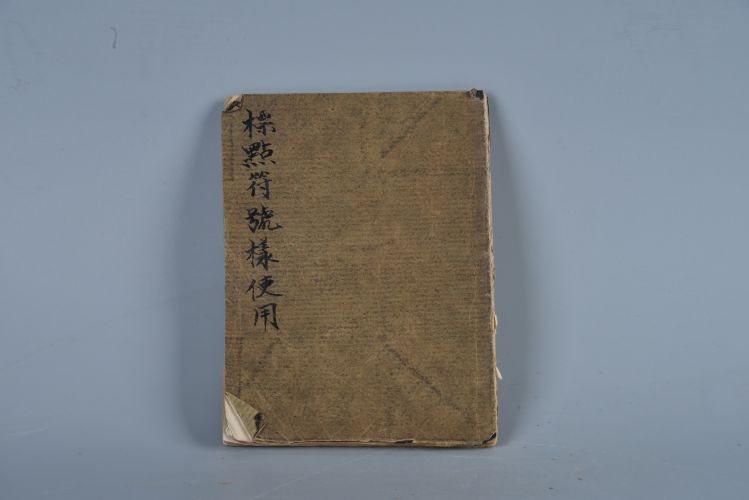 標點符號樣使用